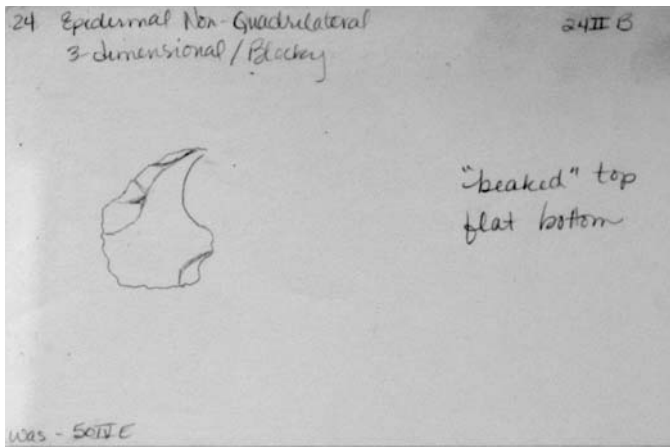 24 Epidermal Non-Quadrilateral
24 II B
3-dimensional/Blocky
"beaked" top
flat bottom
was - 50 IV E